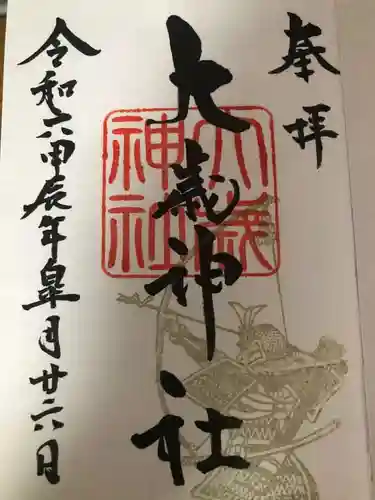 奉拝
大歳神社
大歳神社
令和六甲辰年皐月廿六日